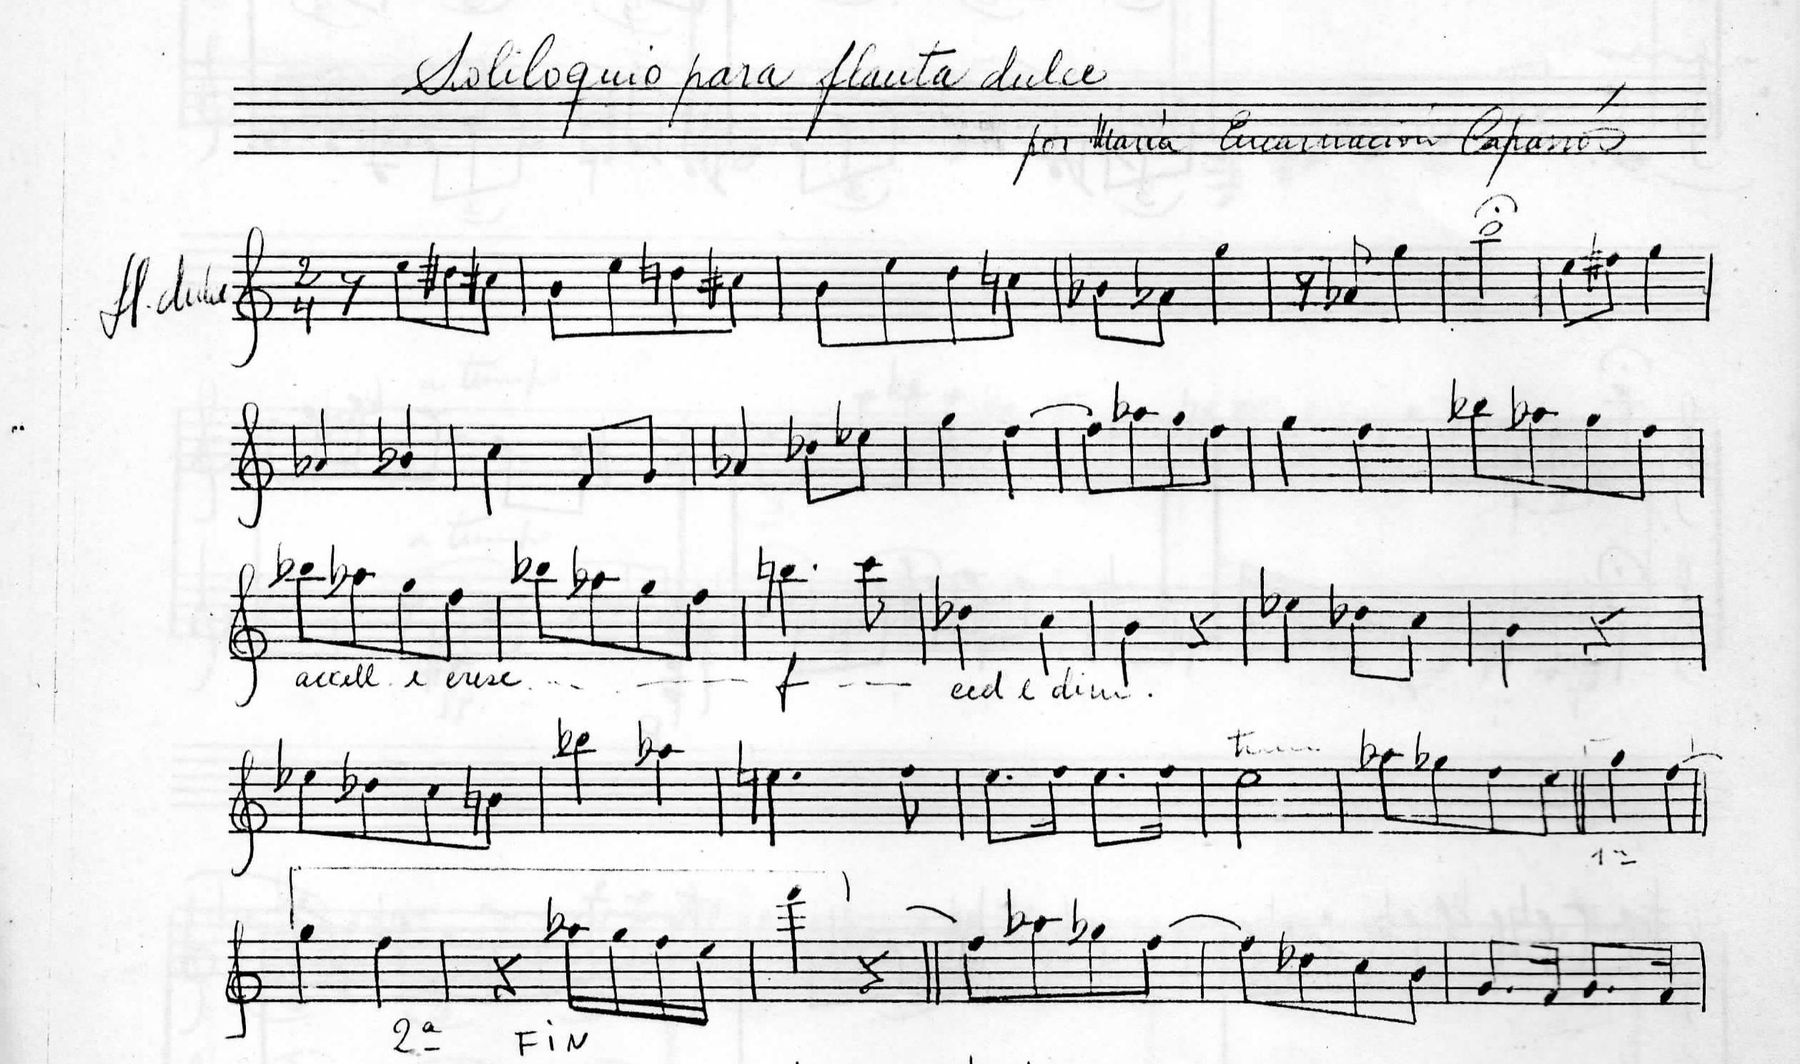 Soliloquio para flauta dulce
por María Encarnación Caparrós
fl. dulce
2
4
accell e cresc
f
ced e dim.
1ª
2ª FiN